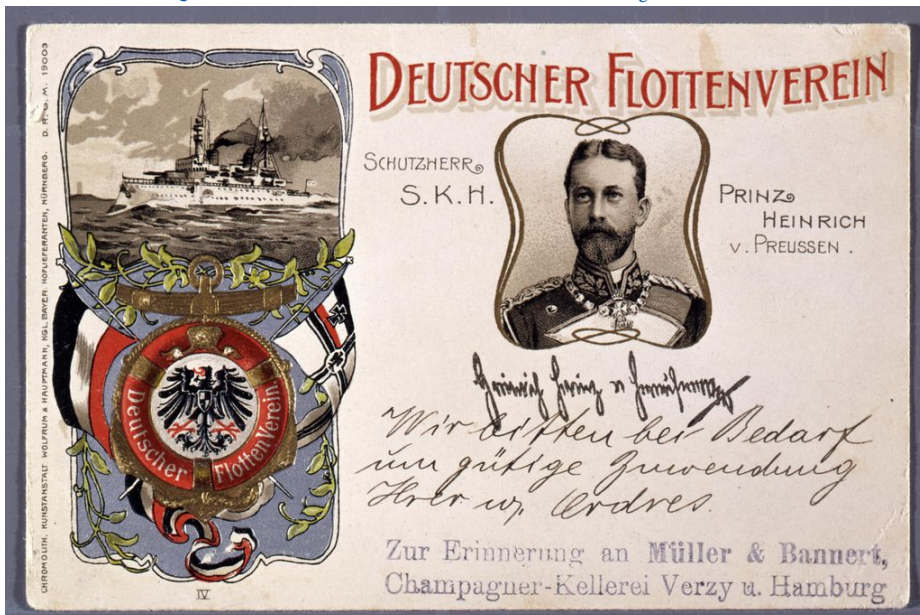 DEUTSCHER FLOTTENVEREIN
SCHUTZHERR
S. K. H.
PRINZ
HEINRICH
V. PREUSSEN.
Heinrich Prinz v
Wir bitten bei Bedarf
um gütige Zuwendung
Ihrer w. Ordres.
Zur Erinnerung an Müller & Bannert,
Champagner-Kellerei Verzy u. Hamburg
Deutscher Flottenverein.
IV
CHROMOLITH. KUNSTANSTALT WOLFRUM & HAUPTMANN, KGL. BAYER. HOFLIEFERANTEN, NÜRNBERG. D. R. G. M. 19003